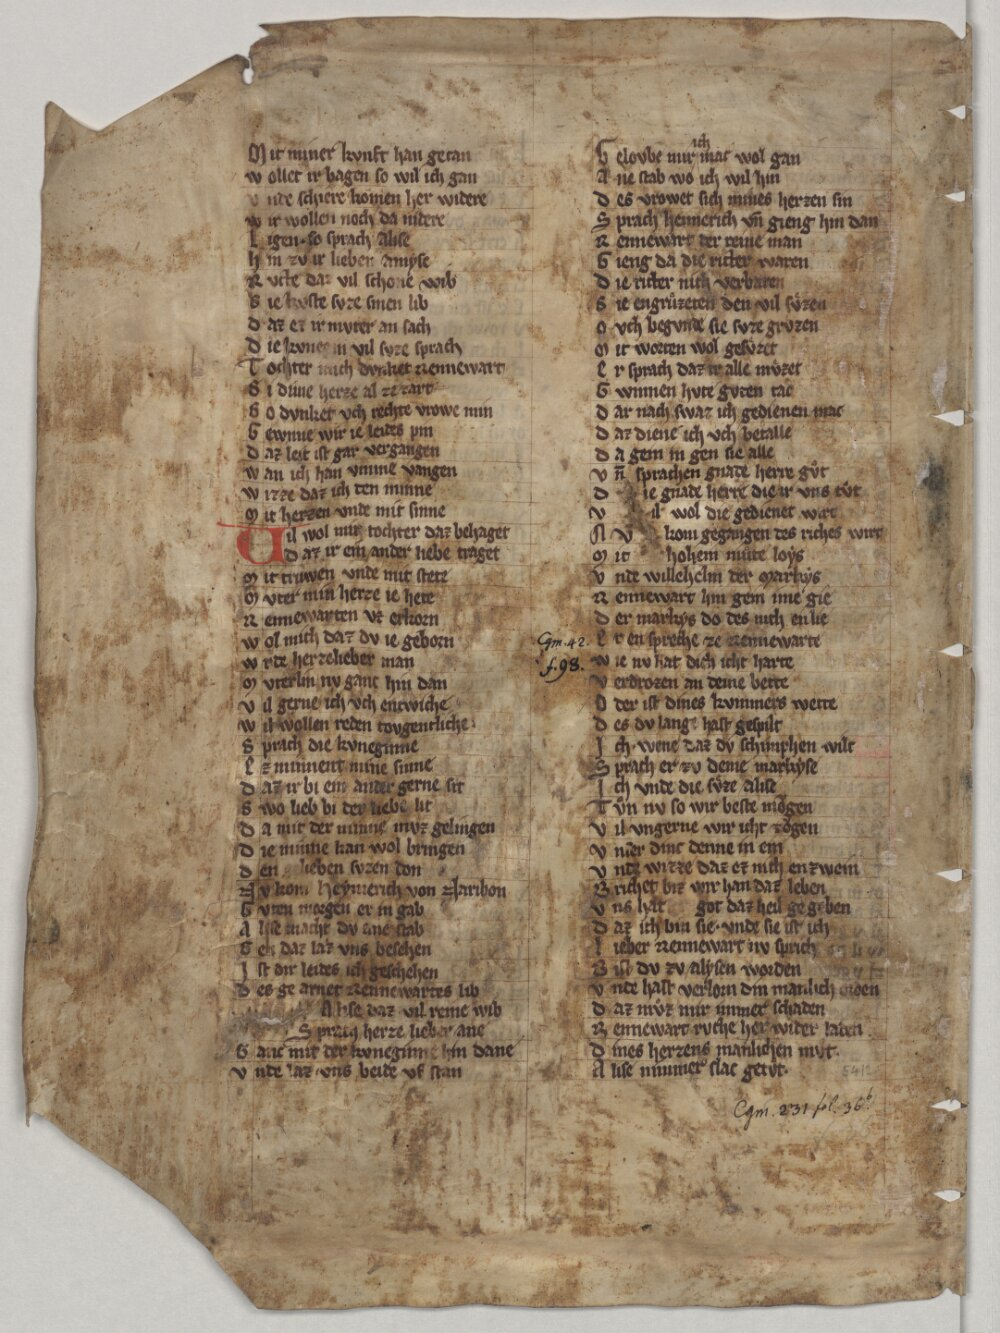 Mit miner kvnst han getan
wollet ir bagen so wil ich gan
vnde schiere komen her widere
wir wollen noch da nidere
Ligen so sprach alise
hin zv ir lieben amyse
Rvcte daz vil schone wib
Sie kvste svze sinen lib
Daz ez ir mvter an sach
Die kvnegin vil svze sprach
Tochter mich dvnket Rennewart
Si dime herze al ze zart
So dvnket vch rechte vrowe min
Gewinne wir ie leides pin
Daz leit ist gar vergangen
wan ich han vmme vangen
wizze daz ich den minne
Mit herzen vnde mit sinne
Vil wol mir tochter daz behaget
Daz ir ein ander liebe traget
Mit truwen vnde mit stete
Mvter min herze ie hete
Rennewarten vz erkorn
wol mich daz dv ie geborn
wrde herzelieber man
Mvterlin nv ganc hin dan
Vil gerne ich vch entwiche
wil wollen reden tovgentliche
Sprach die kvneginne
Ez minnent mine sinne
Daz ir bi ein ander gerne sit
Swo lieb bi der liebe lit
Da mit der minne mvz gelingen
Die minne kan wol bringen
Den lieben svzen don
Nv kom Heymerich von Naribon
Gvten morgen er in gab
Alise macht dv ane stab
Gen daz laz vns besehen
Ist dir leides ich geschehen
Des ge arnet Rennewartes lib
Alise daz vil reine wib
Sprach herze lieber ane
Ganc mit der kvneginne hin dane
Vnde laz vns beide vf stan
Gelovbe mir ich mac wol gan
Ane stab wo ich wil hin
Des vrowet sich mines herzen sin
Sprach heimerich vn̄ gieng hin dan
Rennewart der reine man
Gieng da die ritter waren
Die ritter nich verbaren
Sie engrůzeten den vil sůzen
Ovch begvnde sie svze grvzen
Mit worten wol gesůzet
Er sprach daz ir alle mvzet
Gwinnen hvte gvten tac
Dar nach swaz ich gedienen mac
Daz diene ich vch betalle
Da gein in gen sie alle
Vn̄ sprachen gnade herre gůt
Die gnade herre die ir vns tůt
Vil wol die gedienet wirt
Nv kom gegangen des riches wirt
Mit hohem můte Loys
Vnde willehelm der Markys
Rennewart hin gein ime gie
Der markys do des nich en lie
Er en spreche ze Rennewarte
Wie nv hat dich icht harte
Verdrozen an deme bette
Oder ist dines kvmmers wette
Des dv lange hast gespilt
Ich wene daz dv schimphen wilt
Sprach er zv deme markyse
Ich vnde die sůze alise
Tůn nv so wir beste můgen
Vil vngerne wir icht zůgen
Vnser dinc denne in ein
Vnde wizze daz ez nich enzwein
Brichet biz wir han daz leben
Vns hat got daz heil gegeben
Daz ich bin sie vnde sie ist ich
Lieber Rennewart nv sprich
Bist dv zv alysen worden
Vnde hast verlorn din manlich orden
Daz mvz mir immer schaden
Rennewart rvche her wider laden
Dines herzens manlichen mvt
Alise nimmer slac getvt
Cgm. 42.
f. 98.
5412
Cgm. 231 fol. 36b